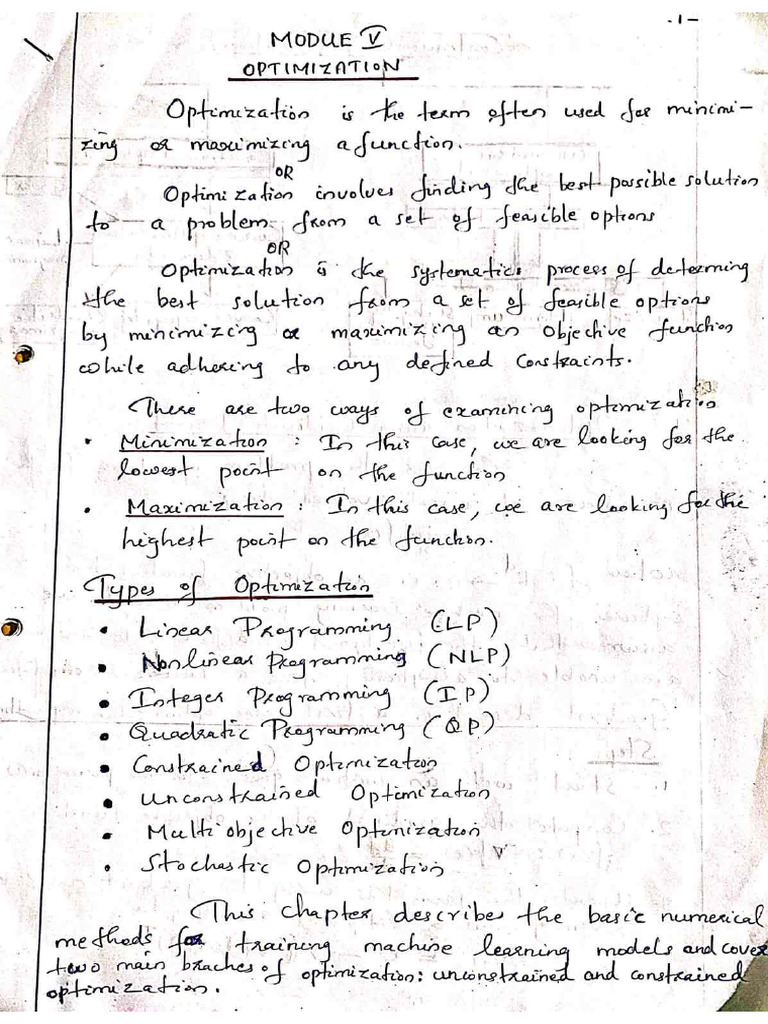 -1-
MODULE V
OPTIMIZATION
Optimization is the term often used for minimi-
zing or maximizing a function.
OR
Optimization involves finding the best possible solution
to a problem from a set of feasible options
OR
Optimization is the systematics process of determing
the best solution from a set of feasible options
by minimizing or maximizing an objective function
while adhering to any defined constraints.
There are two ways of examining optimization
• Minimization : In this case, we are looking for the
lowest point on the function
• Maximization : In this case, we are looking for the
highest point on the function.
Types of Optimization
• Linear Programming (LP)
• Nonlinear Programming (NLP)
• Integer Programming (IP)
• Quadratic Programming (QP)
• Constrained Optimization
• Unconstrained Optimization
• Multiobjective Optimization
• Stochastic Optimization
This chapter describes the basic numerical
methods for training machine learning models and cover
two main braches of optimization: unconstrained and constrained
optimization.